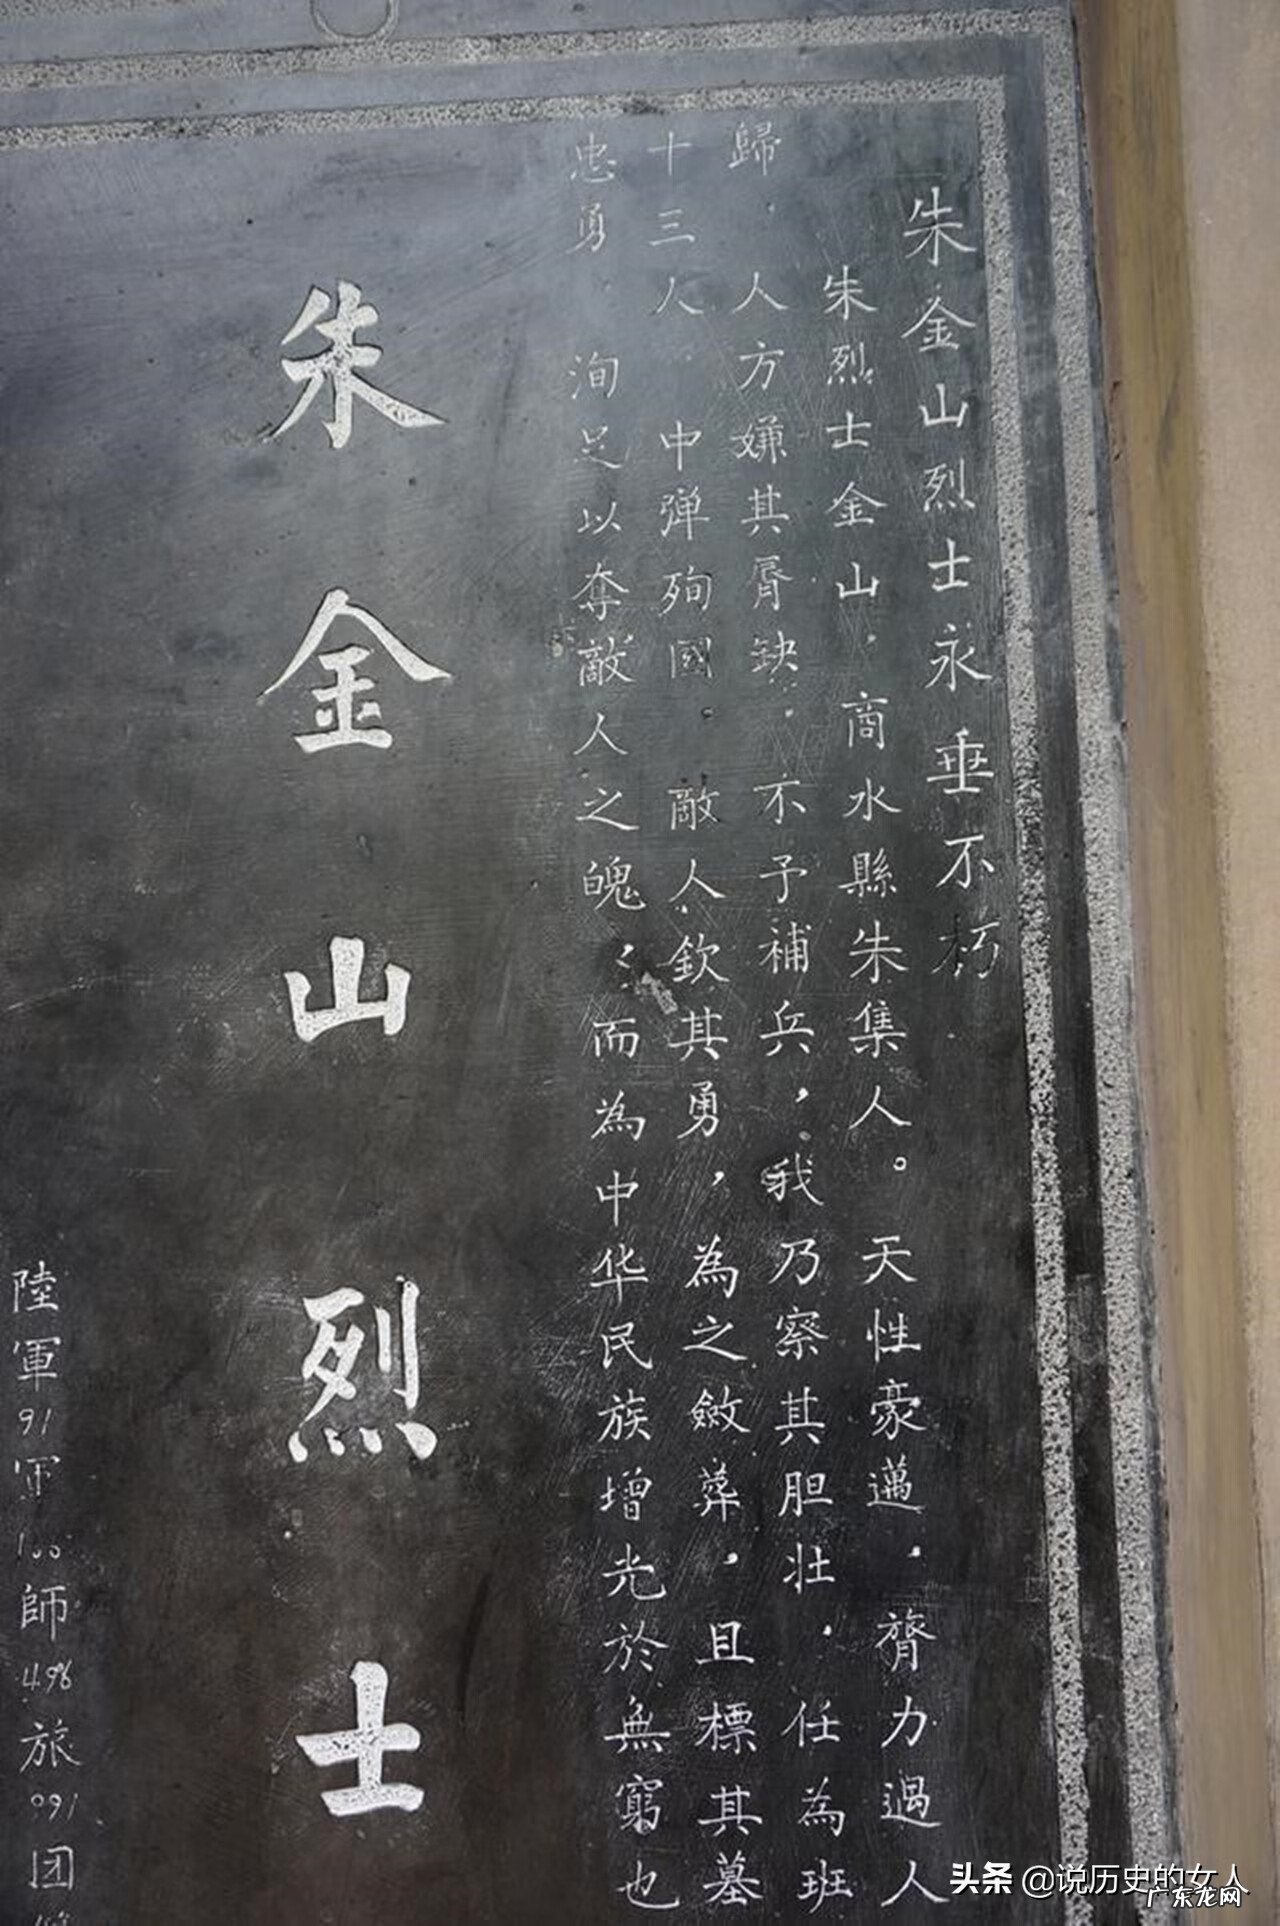 朱金山烈士永垂不朽
朱烈士金山，商水縣朱集人。天性豪邁，膂力過人
歸．人方嫌其脣缺．不予補兵，我乃察其胆壮．任為班
十三人．中弹殉國．敵人欽其勇，為之斂葬，且標其墓
忠勇 洵足以奪敵人之魄，而為中华民族增光於無窮也
朱金山烈士
陸軍91军100師496旅091团
头条 @说历史的女人
广东龙网